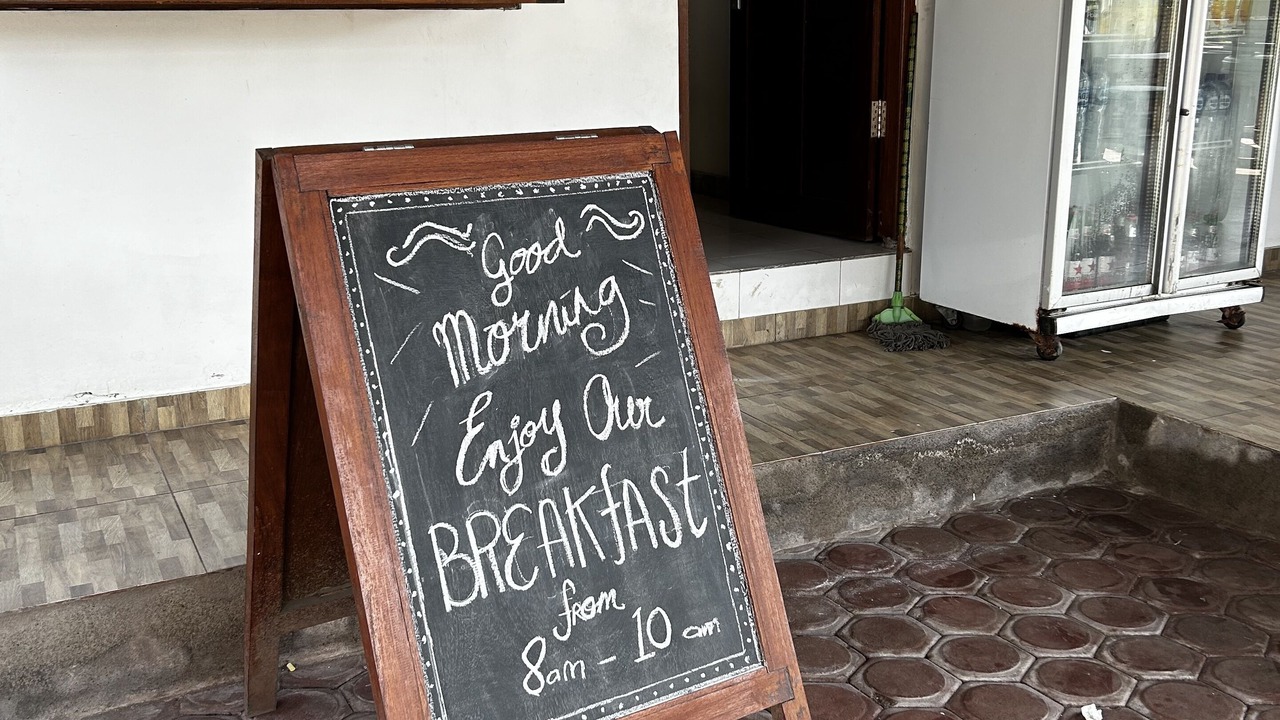 Good
Morning
Enjoy Our
BREAKfASt
from
8am - 10 am